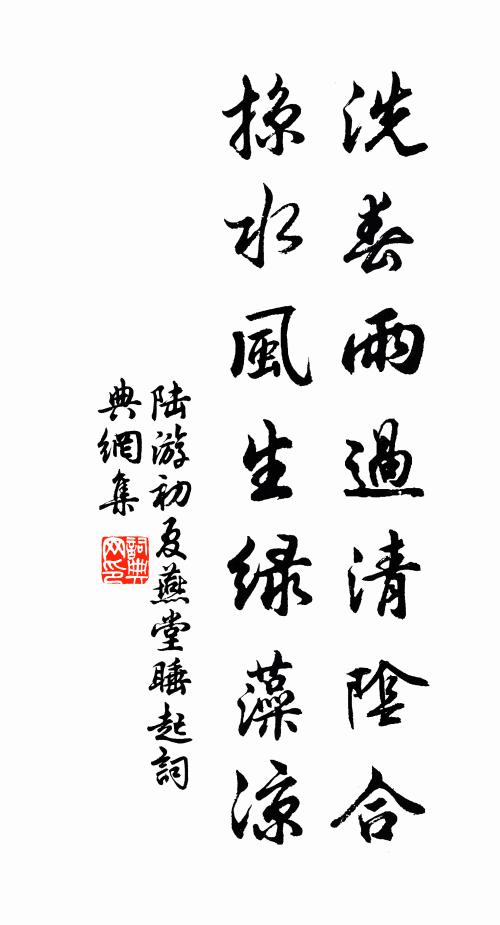 洗春雨過清陰合
掠水風生緑藻凉
陆游初夏燕堂睡起詞
典網集
詞典
网印